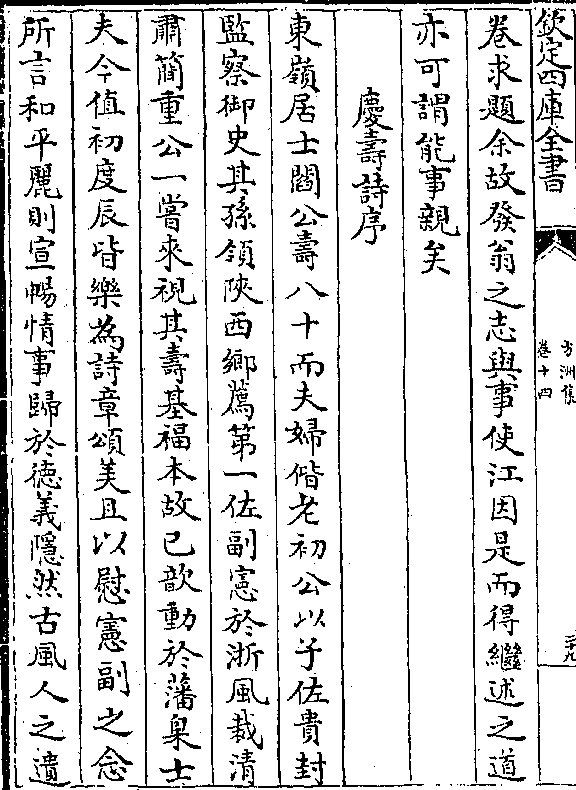 欽定四庫全書
方洲集
卷十四
二十九
卷求題余故發翁之志與事使江因是而得繼述之道
亦可謂能事親矣
慶壽詩序
東嶺居士閻公壽八十而夫婦偕老初公以子佐貴封
監察御史其孫領陜西鄉薦第一佐副憲於浙風裁清
肅簡重公一嘗來視其壽基福本故已歆動於藩臬士
夫今值初度辰皆樂為詩章頌美且以慰憲副之念
所言和平麗則宣暢情事歸於徳義隱然古風人之遺